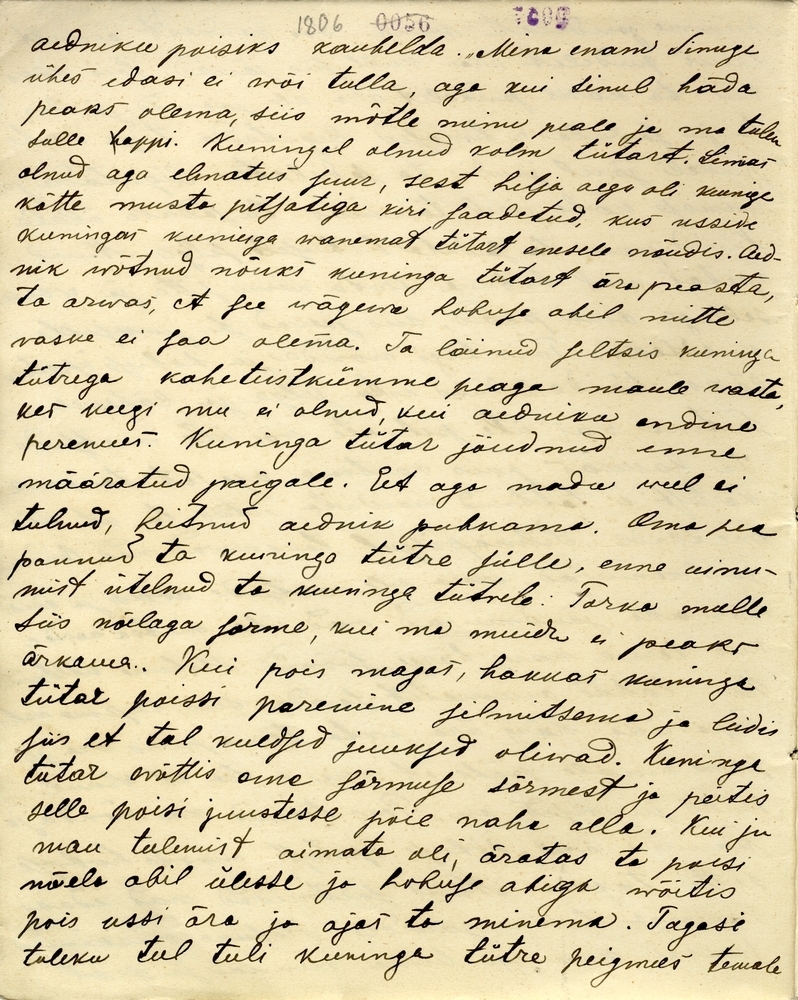 1806 0056
aedniku poisiks kaubelda. „Mina enam Sinuge
ühes edasi ei wõi tulla, aga kui sinul häda
peaks olema, siis mõtle minu peale ja ma tulen
sulle happi. Kuningal olnud kolm tütart. Linnas
olnud aga elmatus suur, sest hilja aego oli kuninga
kätte musta pitsatiga kiri saadetud, kus usside
kuningas kuninga wanemat tütart enesele nõudis. Aed-
nik wõtnud nõuks kuninga tütart ära peasta,
ta arwas, et see wägewa hobuse abil mitte
raske ei saa olema. Ta läinud seltsis kuninga
tütrega kaheteistkümme peaga maule wasta,
kes keegi muu ei olnud, kui aedniku endine
peremees. Kuninga tütar jõudnud enne
määratud paigale. Et aga madu weel ei
tulnud, heitnud aednik puhkama. Oma pea
pannud ta kuninga tütre sülle, enne uinu-
mist ütelnud ta kuninga tütrele: Torka mulle
siis nõelaga sõrme, kui ma muidu ei peaks
ärkama.. Kui pois magas, hakkas kuninga
tütar poissi paremine silmitsema ja leidis
siis et tal kuldsed juuksed oliwad. Kuninga
tütar wõttis oma sõrmuse sõrmest ja peitis
selle poisi juustesse põie naha alla. Kui ju
mau tulemist aimata oli, äratas ta poisi
nõela abil ülesse ja hobuse abiga wõitis
pois ussi ära ja ajas ta minema. Tagasi
tuleku tel tuli kuninga tütre peigmees temale